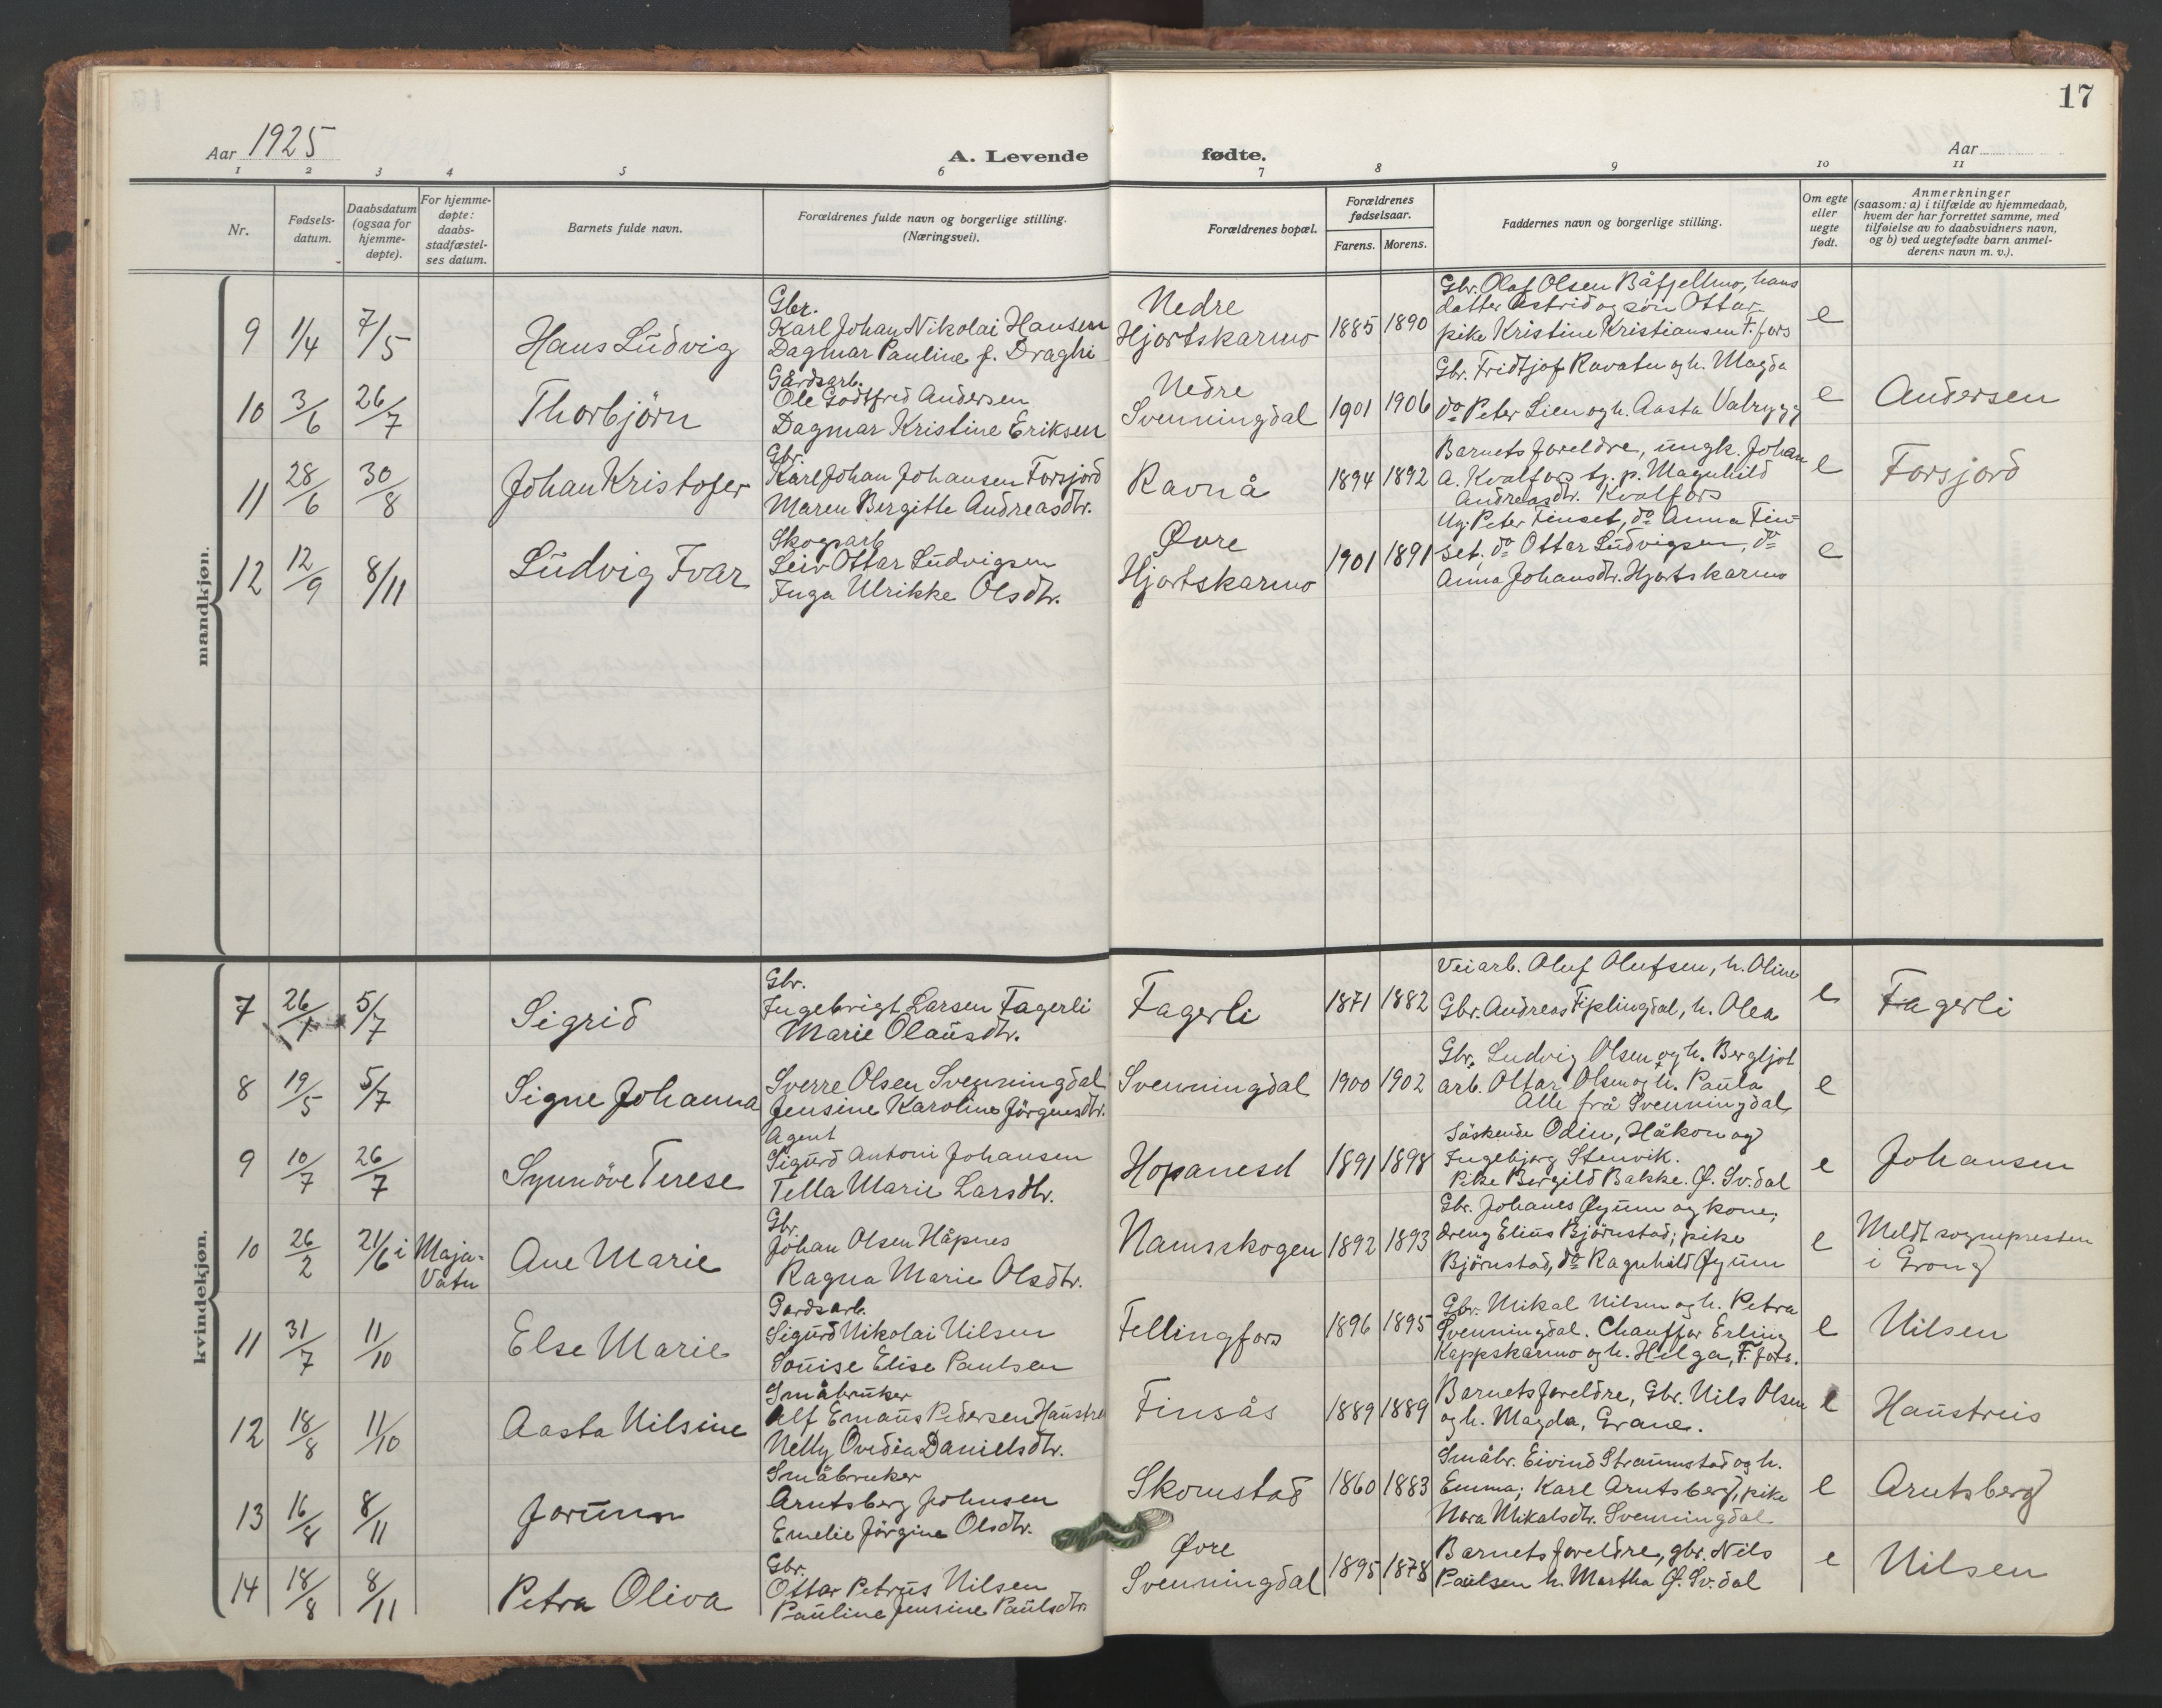 17
Aar 1925
A. Levende fødte.
Aar
1 2 3 4 5 6 7 8 9 10 11
Nr.
Fødsels-
datum.
Daabsdatum
(ogsaa for
hjemme-
døpte).
For hjemme-
døpte:
daabs-
stadfæstel-
ses datum.
Barnets fulde navn.
Forældrenes fulde navn og borgerlige stilling.
(Næringsvei).
Forældrenes bopæl.
Forældrenes
fødselsaar.
Farens. Morens.
Faddernes navn og borgerlige stilling.
Om egte
eller
uegte
født.
Anmerkninger
(saasom: a) i tilfælde av hjemmedaab,
hvem der har forrettet samme, med
tilføielse av to daabsvidners navn,
og b) ved uegtefødte barn anmel-
derens navn m. v.).
mandkjøn.
9 1/4 7/5
Hans Ludvig
Gbr.
Karl Johan Nikolai Hansen
Dagmar Pauline f. Draghi
Nedre
Hjortskarmo
1885 1890
Gbr. Olaf Olsen Båfjellmo, hans
datter Astrid og søn Ottar,
pike Kristine Kristiansen T.fors
e
10 3/6 26/7
Thorbjörn
Gårdsarb.
Ole Godtfred Andersen
Dagmar Kristine Eriksen
Nedre
Svenningdal
1901 1906
Gbr. Fridtjof Ravatn og h. Magda
do Peter Lien og h. Aasta Vatrygg
e
Andersen
11 28/6 30/8
Johan Kristofer
Gbr.
Karl Johan Johansen Forsjord
Maren Bergitte Andreasdtr.
Ravnå
1894 1892
Barnets foreldre, ungk. Johan
A. Kvalfors tj. p. Magnhild
Andreasdtr. Kvalfors
e
Forsjord
12 12/9 8/11
Ludvig Ivar
Skogsarb
Leiv Ottar Ludvigsen
Inga Ulrikke Olsdtr.
Øvre
Hjortskarmo
1901 1891
Ug. Peter Finset, do Anna Fin-
set, do Ottar Ludvigsen, do
Anna Johansdtr. Hjortskarmo
e
kvindekjøn.
7 26/1 5/7
Sigrid
Gbr.
Ingebrigt Larsen Fagerli
Marie Olausdtr.
Fagerli
1871 1882
Veiarb. Oluf Olufsen, h. Oline
Gbr. Andreas Fiplingdal, h. Olea
e
Fagerli
8 19/5 5/7
Signe Johanna
Sverre Olsen Svenningdal
Jensine Karoline Jörgensdtr.
Svenningdal
1900 1902
Gbr. Ludvig Olsen og h. Bergljot
arb. Ottar Olsen og h. Paula
Alle frå Svenningdal
e
9 10/7 26/7
Synnöve Terese
Agent
Sigurd Antoni Johansen
Tella Marie Larsdtr.
Hopanesd
1891 1898
Söskende Odin, Håkon og
Ingebjørg Stenvik.
Pike Bergild Bakke. Ø. Sv.dal
e
Johansen
10 26/2 21/6 i Maja-
Vatn
Ane Marie
Gbr.
Johan Olsen Håpnes
Ragna Marie Olsdtr.
Namsskogen
1892 1893
Gbr. Johanes Øyum og kone,
dreng Elius Björnstad; pike
Björnstad, do Ragnhild Øyum
e
Meldt sognepresten
i Grong
11 31/7 11/10
Else Marie
Gardsarb.
Sigurd Nikolai Nilsen
Louise Elise Paulsen
Fellingfors
1896 1895
Gbr. Mikal Nilsen og h. Petra
Svenningdal. Chauffør Erling
Kappskarmo og h. Helga, T.fors.
e
Nilsen
12 18/8 11/10
Aasta Nilsine
Småbruker
Alf Emaus Pedersen Haustre
Nelly Ovedia Danielsdtr.
Finsås
1889 1889
Barnets foreldre, Gbr. Nils Olsen
og h. Magda, Grane.
e
Haustreis
13 16/8 8/11
Jorunn
Småbruker
Arntsberg Johnsen
Emelie Jörgine Olsdtr.
Skomstad
1860 1883
Småbr. Eivind Straumstad og h.
Emma; Karl Arntsberg, pike
Nora Mikalsdtr. Svenningdal
e
Arntsberg
14 18/8 8/11
Petra Oliva
Gbr.
Ottar Petrus Nilsen
Pauline Jensine Paulsdtr.
Øvre
Svenningdal
1895 1878
Barnets foreldre, gbr. Nils
Paulsen h. Martha Ø. Sv.dal
e
Nilsen